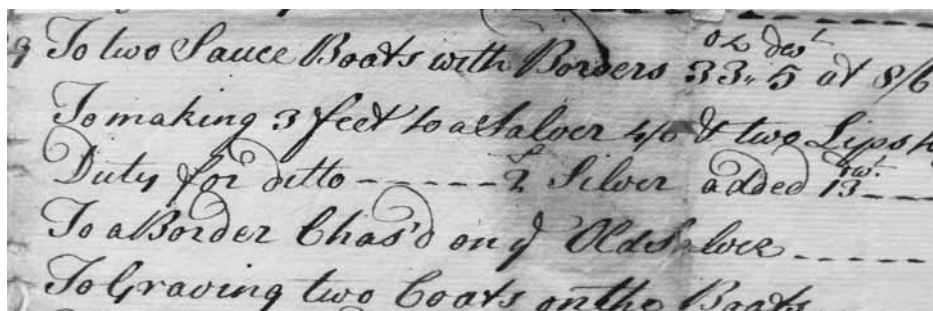 9 To two Sauce Boats with Borders 33,,5 at 8/6
oz dwt
To making 3 feet to a Salver 4/6 & two Lips
Duty for ditto ------ & Silver added 13 ---
dwt
To a Border Chas'd on ye Old Salver -----
To Graving two Coats on the Boats